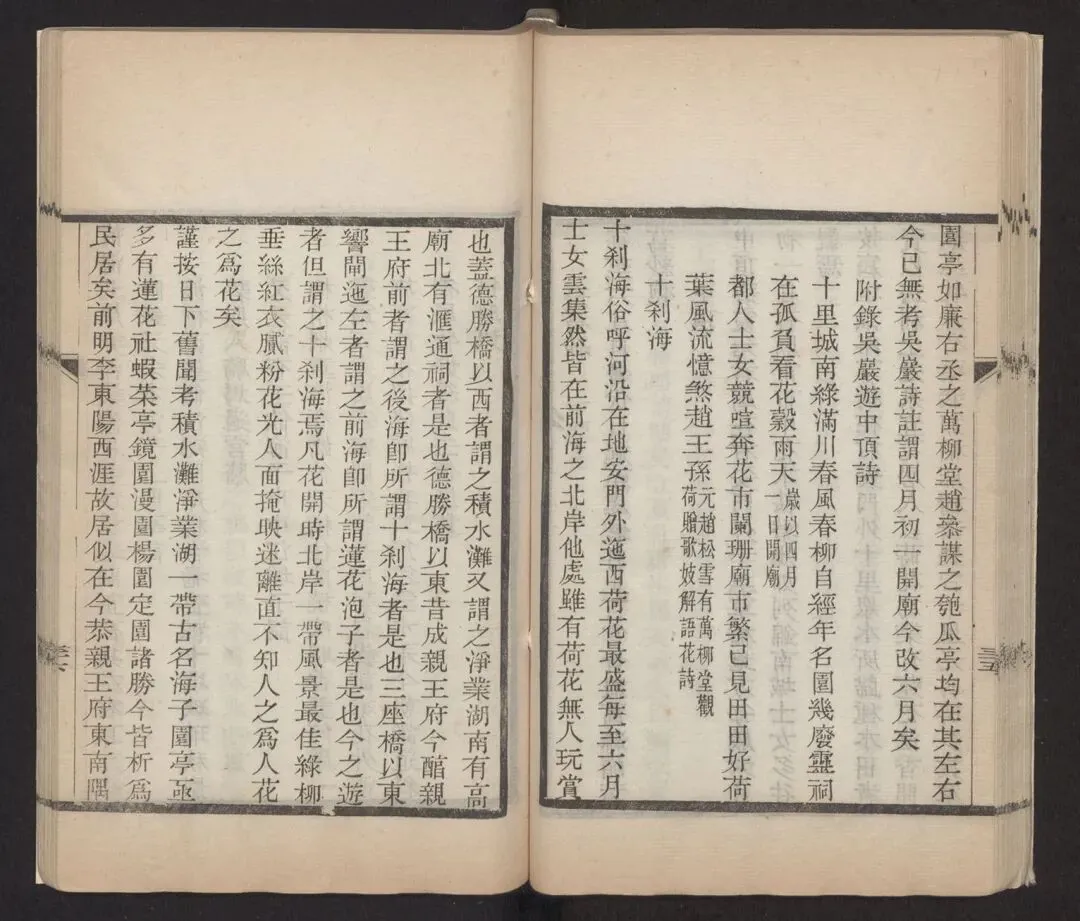 園亭如廉右丞之萬柳堂趙參謀之匏瓜亭均在其左右
今已無考吳巖詩註謂四月初一開廟今改六月矣
附錄吳巖遊中頂詩
十里城南綠滿川春風春柳自經年名園幾廢靈祠
在孤負看花穀雨天歲以四月一日開廟
都人士女競喧奔花市闌珊廟市繁已見田田好荷
葉風流憶煞趙王孫元趙松雪有萬柳堂觀荷贈歌妓解語花詩
十刹海
十刹海俗呼河沿在地安門外迤西荷花最盛每至六月
士女雲集然皆在前海之北岸他處雖有荷花無人玩賞
也蓋德勝橋以西者謂之積水灘又謂之淨業湖南有高
廟北有滙通祠者是也德勝橋以東昔成親王府今醕親
王府前者謂之後海卽所謂十刹海者是也三座橋以東
響閘迤左者謂之前海卽所謂蓮花泡子者是也今之遊
者但謂之十刹海焉凡花開時北岸一帶風景最佳綠柳
垂絲紅衣膩粉花光人面掩映迷離直不知人之爲人花
之爲花矣
謹按日下舊聞考積水灘淨業湖一帶古名海子園亭亟
多有蓮花社蝦菜亭鏡園漫園楊園定園諸勝今皆析爲
民居矣前明李東陽西涯故居似在今恭親王府東南隅
三五
三六